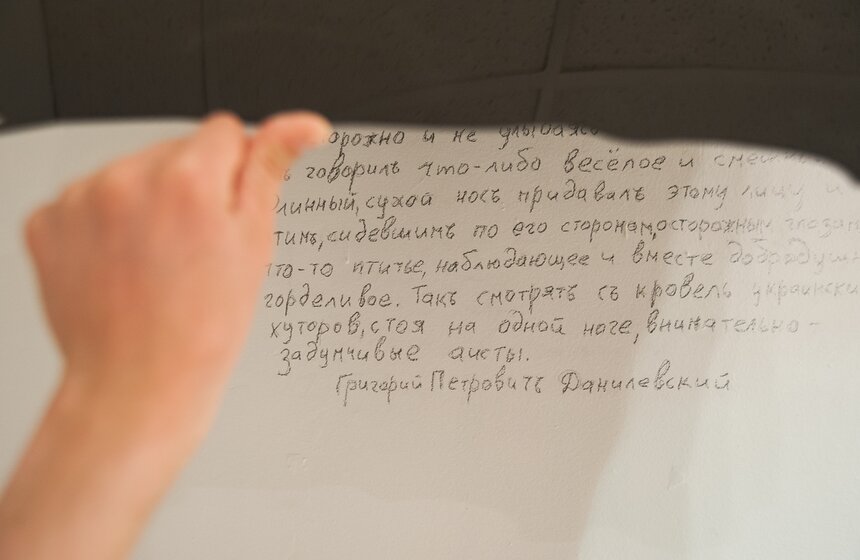 и не улыбаясь
говорилъ что-либо весёлое и
сухой носъ придавалъ этому лицу и
сидевшимъ по его сторонам, осторожным глазам
птичье, наблюдающее и вместе
горделивое. Такъ смотрятъ съ кровель
хуторов, стоя на одной ноге, внимательно-
задумчивые аисты.
Григорий Петровичъ Данилевский